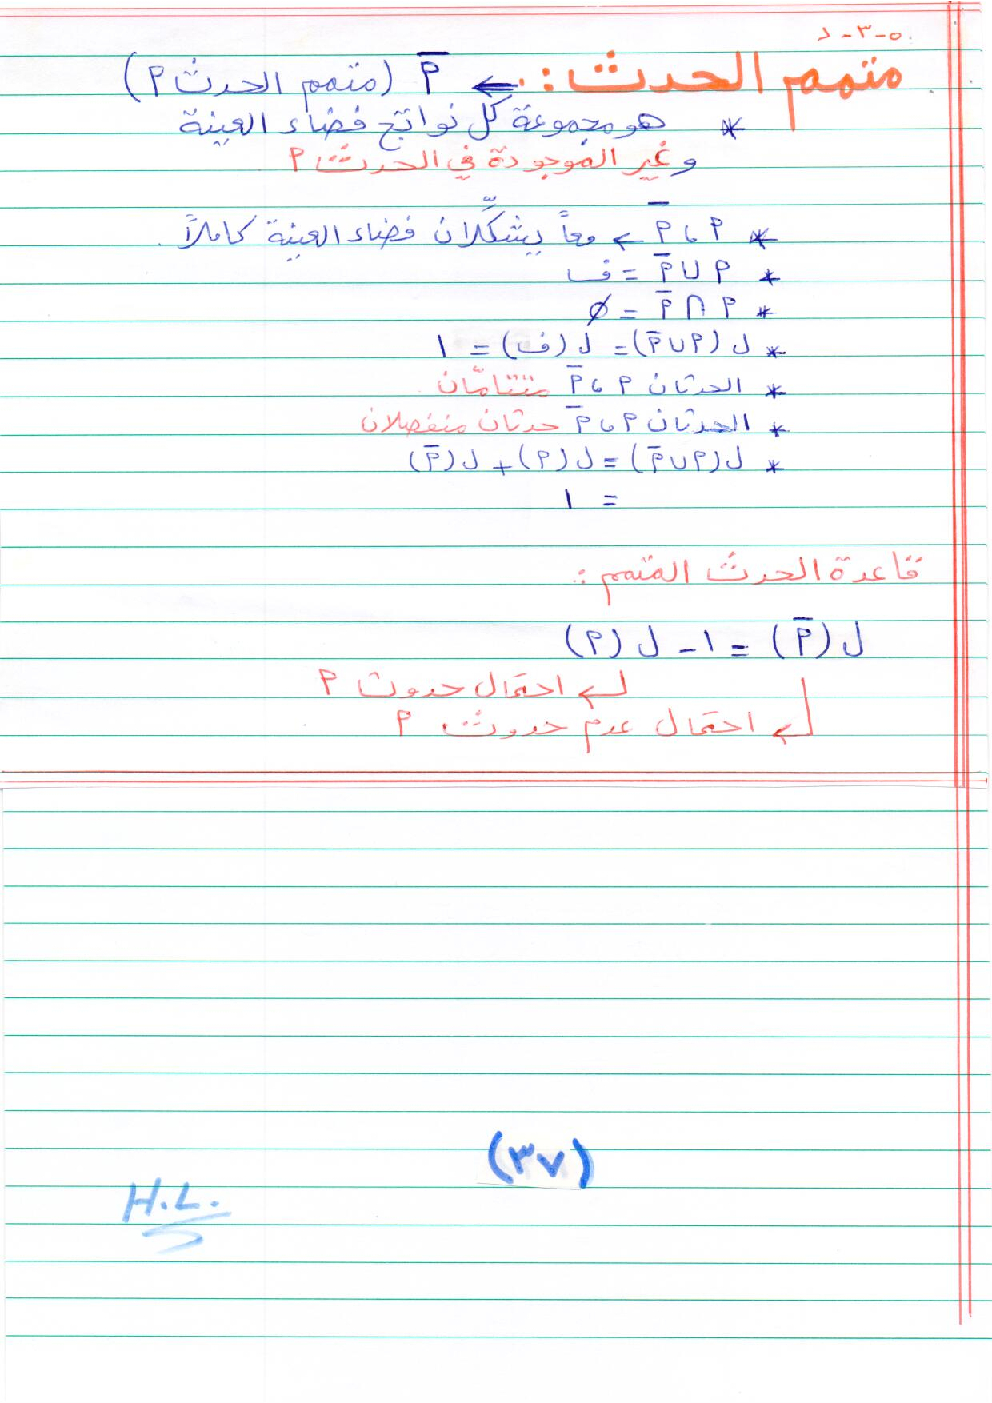 ٥-٣-د
متمم الحدث: ← م̅ (متمم الحدث م)
* هو مجموعة كل نواتج فضاء العينة
و غير الموجودة في الحدث م
* م ، م̅ ← معاً يشكّلان فضاء العينة كاملاً.
* م ∪ م̅ = ف
* م ∩ م̅ = ∅
* ل (م ∪ م̅) = ل (ف) = ١
* الحدثان م ، م̅ متتامّان.
* الحدثان م ، م̅ حدثان منفصلان
* ل (م ∪ م̅) = ل (م) + ل (م̅)
= ١
قاعدة الحدث المتمم :
ل (م̅) = ١ - ل (م)
← احتمال حدوث م
← احتمال عدم حدوث م
(٣٧)
H.L.